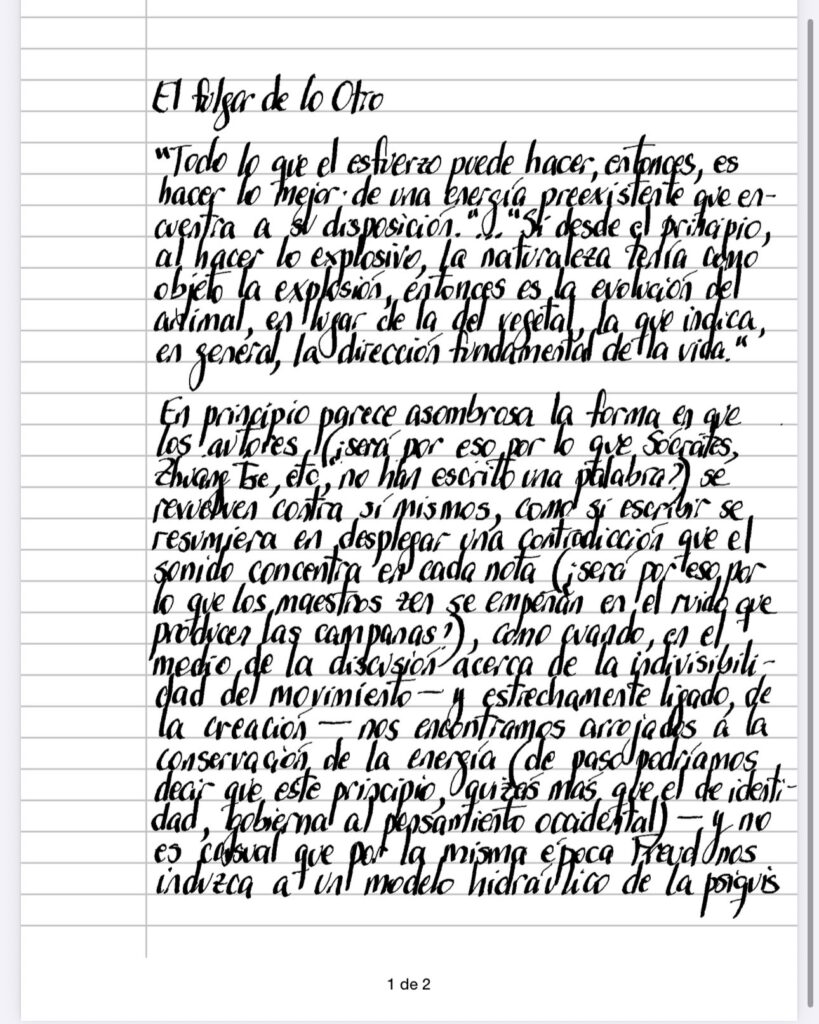 El fulgor de lo Otro
"Todo lo que el esfuerzo puede hacer, entonces, es
hacer lo mejor de una energía preexistente que en-
cuentra a su disposición."..."Si desde el principio,
al hacer lo explosivo, la naturaleza tenía como
objeto la explosión, entonces es la evolución del
animal, en lugar de la del vegetal, la que indica,
en general, la dirección fundamental de la vida."
En principio parece asombrosa la forma en que
los autores, (¿será por eso por lo que Sócrates,
Zhuang Tse, etc, no han escrito una palabra?) se
revuelven contra sí mismos, como si escribir se
resumiera en desplegar una contradicción que el
sonido concentra en cada nota (¿será por eso por
lo que los maestros zen se empeñan en el ruido que
producen las campanas?), como cuando, en el
medio de la discusión acerca de la indivisibili-
dad del movimiento — y estrechamente ligado, de
la creación — nos encontramos arrojados a la
conservación de la energía (de paso podríamos
decir que este principio, quizás más que el de identi-
dad, gobierna al pensamiento occidental) — y no
es casual que por la misma época Freud nos
induzca a un modelo hidráulico de la psiquis
1 de 2